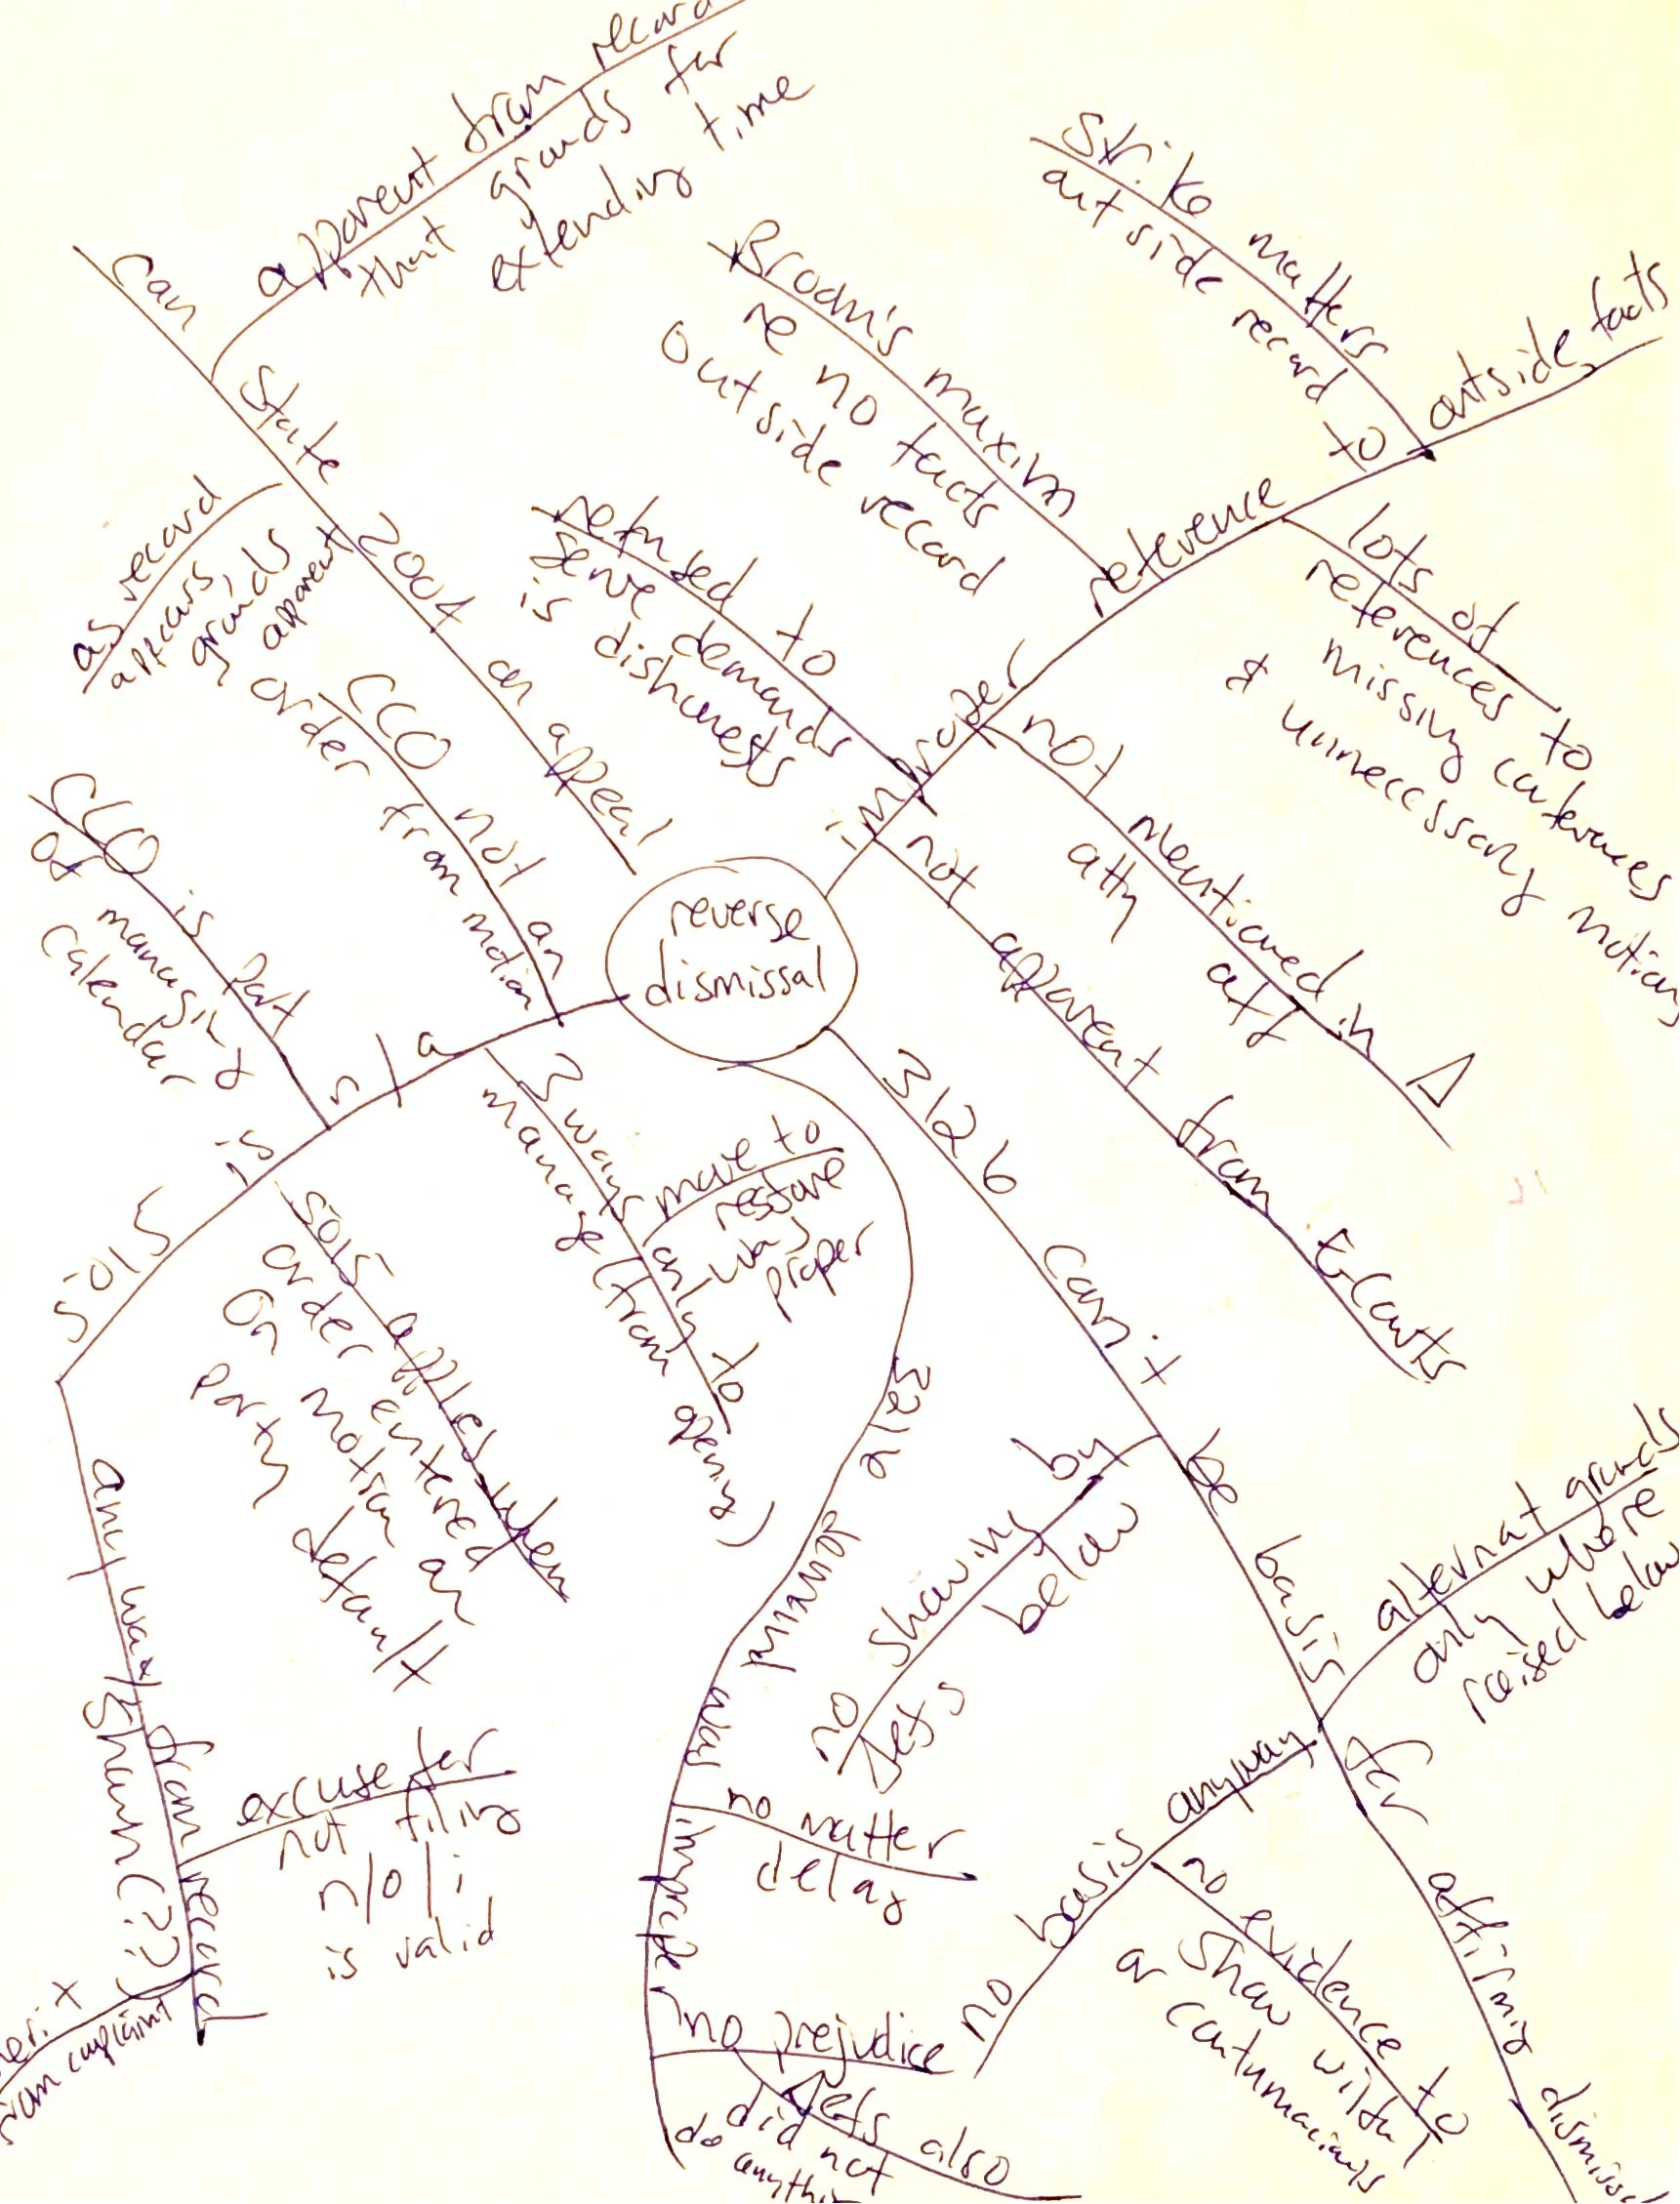 apparent from record
that grounds for
extending time
Can State 2004 on appeal
as record
appears,
grounds
apparent
CCO not an
order from motion
CCO is part
of managing
calendar
Strike matters
outside record
Brodn's maxim
re no facts
outside record
refused to
serve demands
is dishonests
improper reference to outside facts
lots of
references to
missing conferences
& unnecessary motions
not mentioned in Δ
atty aff
not apparent from t-courts
reverse
dismissal
5015 is n/a
5015 applies when
order entered
on motion or
party default
3 ways only to
manage (from opening)
move to
restore
was
proper
3126 can't be basis for affirming dismissal
no showing by
defs below
alternat grounds
only where
raised below
no basis anyway
no evidence to
show wilful
or contumacious
3216 dismissal was improper
no matter
delay
no prejudice
defs also
did not
do anything
any way shown (??) from record
excuse for
not filing
n/o/i
is valid
merit
from complaint